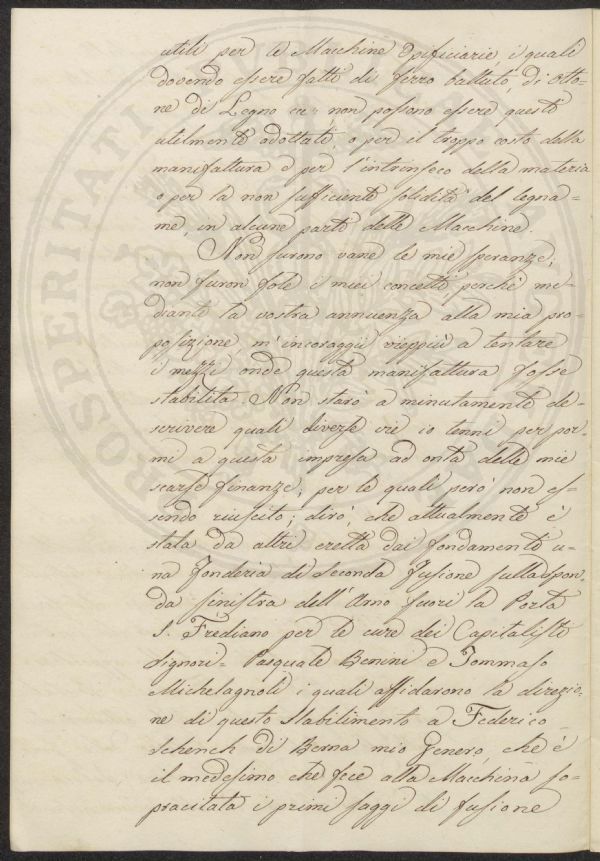 utili per le Macchine Opificiarie, i quali
dovendo essere fatti di ferro battuto, di Otto-
ne di Legno ec: non possono essere questi
utilmente adottati, o per il troppo costo della
manifattura e per l'intrinseco della materia
o per la non sufficiente solidità del legna-
me, in alcune parti delle Macchine.
Non furono vane le mie speranze;
non furon fole i miei concetti perchè me-
diante la vostra annuenza alla mia pro-
posizione m'incoraggii vieppiù a tentare
i mezzi onde questa manifattura fosse
stabilita. Non starò a minutamente de-
scrivere quali diverse vie io tenni per por-
mi a questa impresa ad onta delle mie
scarse finanze; per le quali però non es-
sendo riuscito; dirò, che attualmente è
stata da altri eretta dai fondamenti u-
na Fonderia di Seconda Fusione sulla spon-
da sinistra dell'Arno fuori la Porta
S. Frediano per le cure dei Capitalisti
Signori= Pasquale Benini e Tommaso
Michelagnoli i quali affidarono la direzio-
ne di questo Stabilimento a Federico
Schenck di Berna mio Genero, che è
il medesimo che fece alla Macchina so-
pracitata i primi saggi di fusione
PROSPERITATI